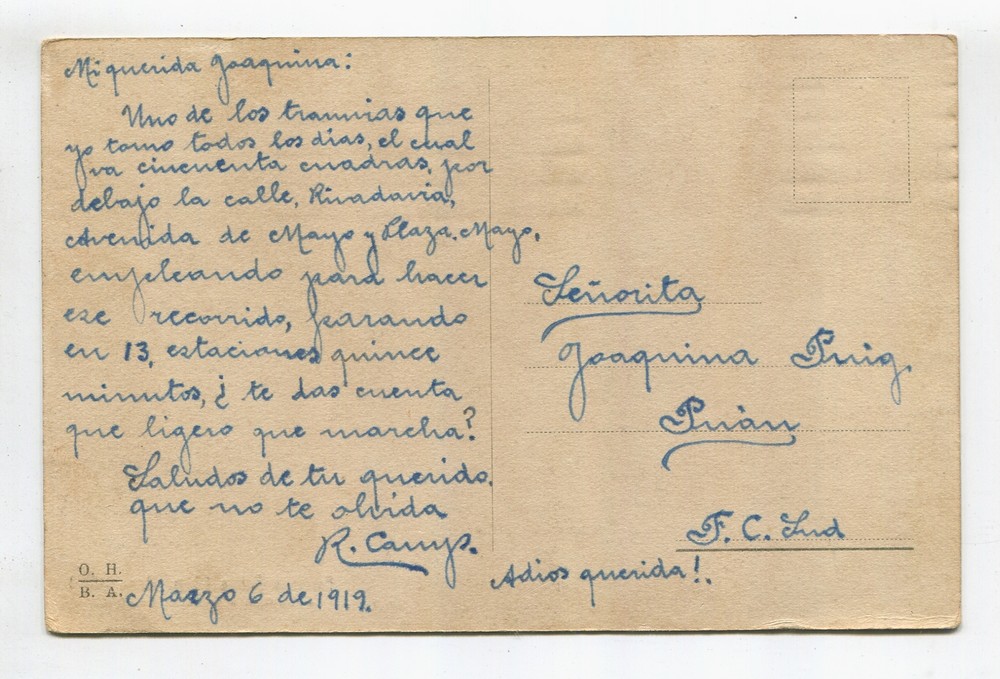 Mi querida Joaquina:
Uno de los tramvias que
yo tomo todos los dias, el cual
va cincuenta cuadras, por
debajo la calle, Rivadavia,
Avenida de Mayo y Plaza. Mayo,
empleando para hacer
ese recorrido, parando
en 13, estaciones quince
minutos, ¿ te das cuenta
que ligero que marcha?
Saludos de tu querido.
que no te olvida
R. Camps.
O. H.
B. A.
Marzo 6 de 1919.
Adios querida!.
Señorita
Joaquina Puig.
Puàn
F. C. Sud